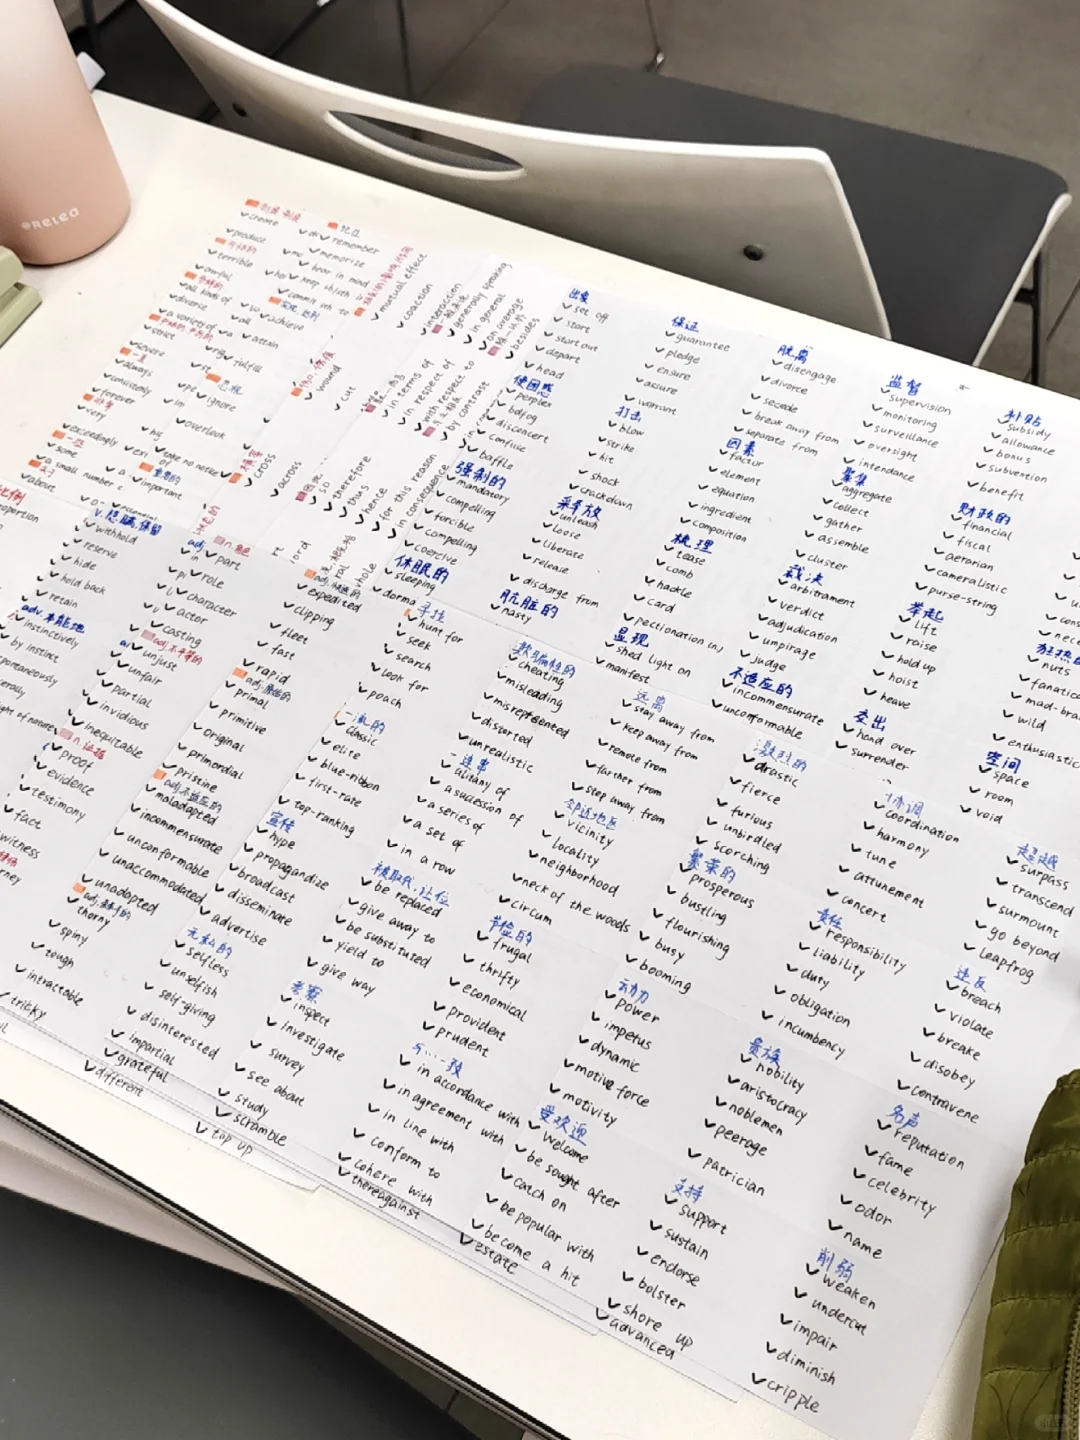 RELEA
create
produce
terrible
awful
all kinds of
diverse
a variety of
strict
severe
always
consistently
forever
very
exceedingly
some
a small number
about
remember
memorize
bear in mind
achieve
attain
fulfill
忽视
ignore
overlook
重要的
important
cross
across
wound
cut
mutual effect
coaction
interaction
generally speaking
in general
on average
besides
in terms of
in respect of
with respect to
by contrast
so
therefore
thus
hence
for this reason
in consequence
出发
set off
start
start out
depart
head
使困惑
perplex
bdfog
disconcert
confuse
baffle
强制的
mandatory
compelling
forcible
compelling
coercive
休眠的
sleeping
保证
guarantee
pledge
ensure
assure
warrant
打击
blow
strike
hit
shock
crackdown
释放
unleash
loose
liberate
release
discharge from
肮脏的
nasty
脱离
disengage
divorce
secede
break away from
separate from
因素
factor
element
equation
ingredient
composition
梳理
tease
comb
hackle
card
显现
shed light on
manifest
监督
supervision
monitoring
surveillance
oversight
intendance
聚集
aggregate
collect
gather
assemble
cluster
裁决
arbitrament
verdict
adjudication
umpirage
judge
不适应的
incommensurate
unconformable
补贴
subsidy
allowance
bonus
subvention
benefit
财政的
financial
fiscal
aerarian
cameralistic
purse-string
举起
lift
raise
hold up
hoist
heave
交出
hand over
surrender
nuts
wild
enthusiastic
空间
space
room
void
v.隐瞒,保留
withhold
reserve
hide
hold back
retain
adv.本能地
instinctively
by instinct
proof
evidence
testimony
fact
witness
part
role
character
actor
casting
adj.不平等的
unjust
unfair
partial
invidious
inequitable
expedited
clipping
fleet
fast
rapid
primal
primitive
original
primordial
pristine
adj.不适应的
maladapted
incommensurate
unconformable
unaccommodated
unadapted
adj.棘手的
thorny
spiny
tough
intractable
tricky
寻找
hunt for
seek
search
look for
poach
一流的
classic
elite
blue-ribbon
first-rate
top-ranking
宣传
hype
propagandize
broadcast
disseminate
advertise
无私的
selfless
unselfish
self-giving
disinterested
impartial
grateful
different
欺骗性的
cheating
misleading
distorted
unrealistic
一连串
a litany of
a sucession of
a series of
a set of
in a row
被取代,让位
be replaced
give away to
be substituted
yield to
give way
考察
inspect
investigate
survey
see about
study
scramble
top up
远离
stay away from
keep away from
remote from
farther from
step away from
邻近地区
vicinity
locality
neighborhood
neck of the woods
circum
节俭的
frugal
thrifty
economical
provident
prudent
与…一致
in accordance with
in agreement with
in line with
conform to
cohere with
thereagainst
激烈的
drastic
fierce
furious
unbirdled
scorching
繁荣的
prosperous
bustling
flourishing
busy
booming
动力
power
impetus
dynamic
motive force
motivity
受欢迎
welcome
be sought after
catch on
be popular with
become a hit
estate
协调
coordination
harmony
tune
attunement
concert
责任
responsibility
liability
duty
obligation
incumbency
贵族
nobility
aristocracy
noblemen
peerage
patrician
支持
support
sustain
endorse
bolster
shore up
advanced
超越
surpass
transcend
surmount
go beyond
leapfrog
违反
breach
violate
breake
disobey
contravene
名声
reputation
fame
celebrity
odor
name
削弱
weaken
undercut
impair
diminish
cripple